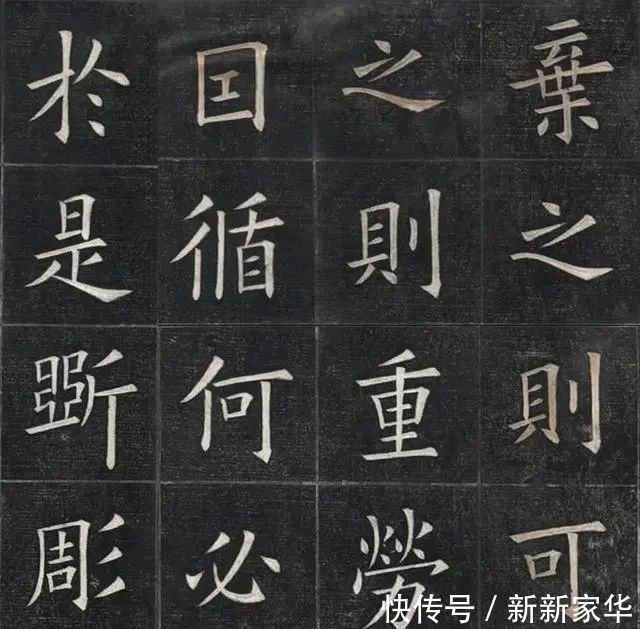 棄之則可
之則重勞
囙循何必
於是斵彫
快传号 / 新新家华